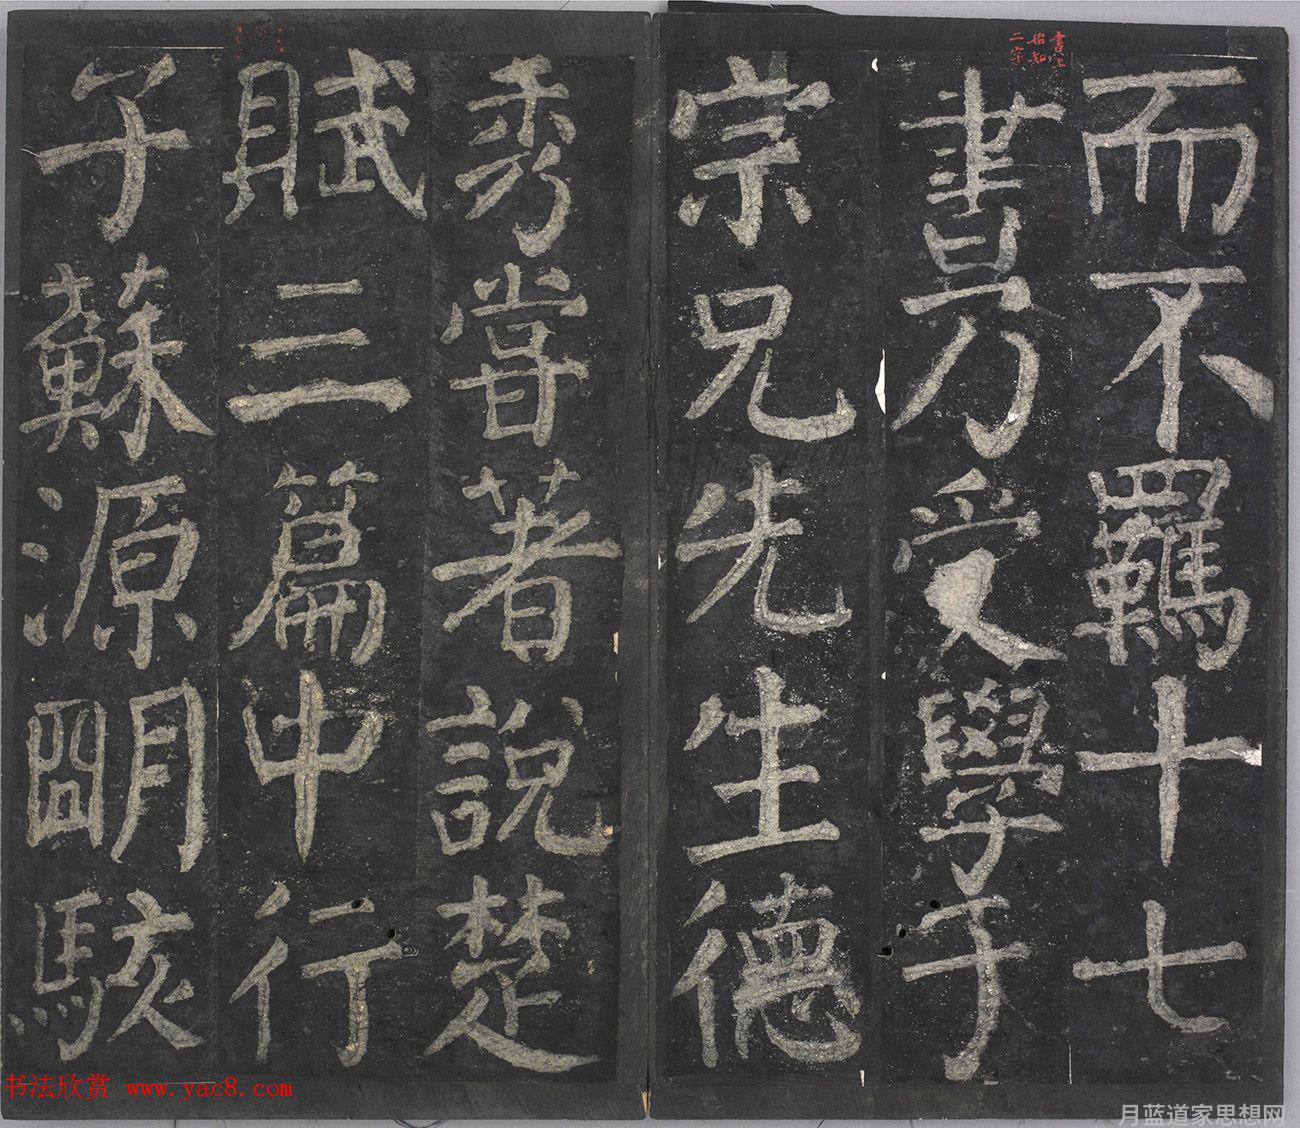 書上
始知
二字
而不羈十七
書乃受學于
宗兄先生德
秀嘗著說楚
賦三篇中行
子蘇源明駭
书法欣赏 www.yac8.com
月蓝道家思想网